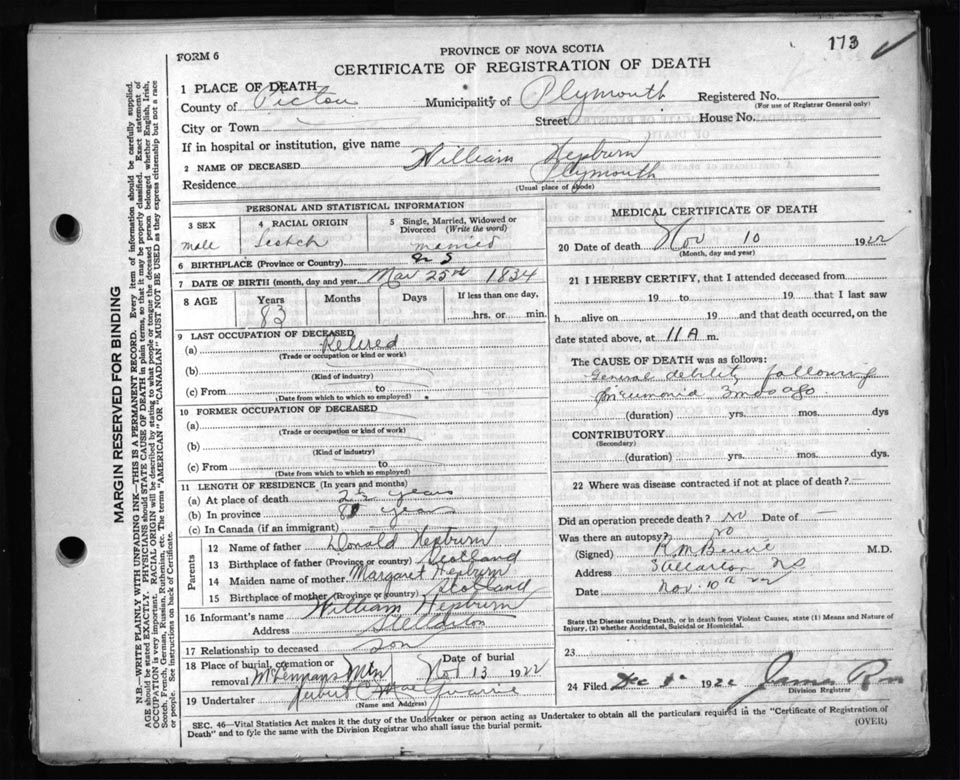 173 ✓
FORM 6
PROVINCE OF NOVA SCOTIA
CERTIFICATE OF REGISTRATION OF DEATH
MARGIN RESERVED FOR BINDING
N.B.—WRITE PLAINLY WITH UNFADING INK—THIS IS A PERMANENT RECORD. Every item of information should be carefully supplied.
AGE should be stated EXACTLY. PHYSICIANS should STATE CAUSE OF DEATH in plain terms, so that it may be properly classified. Exact statement of
OCCUPATION is very important. RACIAL ORIGIN will be described by stating to what people or tongue the deceased person belonged whether English, Irish,
Scotch, French, German, Russian, Ruthenian, etc. The terms "AMERICAN" OR "CANADIAN" MUST NOT BE USED as they express citizenship but not a race
or people. See instructions on back of Certificate.
1 PLACE OF DEATH
County of Pictou Municipality of Plymouth Registered No.
(For use of Registrar General only)
City or Town Street House No.
If in hospital or institution, give name
2 NAME OF DECEASED William Hepburn
Residence Plymouth
(Usual place of abode)
PERSONAL AND STATISTICAL INFORMATION
3 SEX 4 RACIAL ORIGIN 5 Single, Married, Widowed or Divorced (Write the word)
male Scotch married
6 BIRTHPLACE (Province or Country) N S
7 DATE OF BIRTH (month, day and year) Mar 25th 1834
8 AGE Years Months Days If less than one day,
83 hrs. or min.
9 LAST OCCUPATION OF DECEASED
(a) Retired
(Trade or occupation or kind or work)
(b)
(Kind of industry)
(c) From to
(Date from which to which so employed)
10 FORMER OCCUPATION OF DECEASED
(a)
(Trade or occupation or kind of work)
(b)
(Kind of industry)
(c) From to
(Date from which to which so employed)
11 LENGTH OF RESIDENCE (In years and months)
(a) At place of death 2½ years
(b) In province years
(c) In Canada (if an immigrant)
Parents
12 Name of father Donald Hepburn
13 Birthplace of father (Province or country) Scotland
14 Maiden name of mother Margaret Hepburn
15 Birthplace of mother (Province or country) Scotland
16 Informant's name William Hepburn
Address Stellarton
17 Relationship to deceased son
18 Place of burial, cremation or removal McLennans Mtn Date of burial Nov 13 1922
19 Undertaker MacQuarrie
(Name and Address)
MEDICAL CERTIFICATE OF DEATH
20 Date of death Nov 10 1922
(Month, day and year)
21 I HEREBY CERTIFY, that I attended deceased from
19 to 19 that I last saw
h alive on 19 and that death occurred, on
date stated above, at 11 A m.
The CAUSE OF DEATH was as follows:
General debility following
pneumonia 3 mos ago
(duration) yrs. mos. dys
CONTRIBUTORY
(Secondary)
(duration) yrs. mos. dys
22 Where was disease contracted if not at place of death?
Did an operation precede death? No Date of
Was there an autopsy? no
(Signed) M.D.
Address Stellarton NS
Date Nov. 10th 22
State the Disease causing Death, or in death from Violent Causes, state (1) Means and Nature of
Injury, (2) whether Accidental, Suicidal or Homicidal.
23
24 Filed Dec 1922 James
Division Registrar
SEC. 46—Vital Statistics Act makes it the duty of the Undertaker or person acting as Undertaker to obtain all the particulars required in the "Certificate of Registration of
Death" and to fyle the same with the Division Registrar who shall issue the burial permit. (OVER)